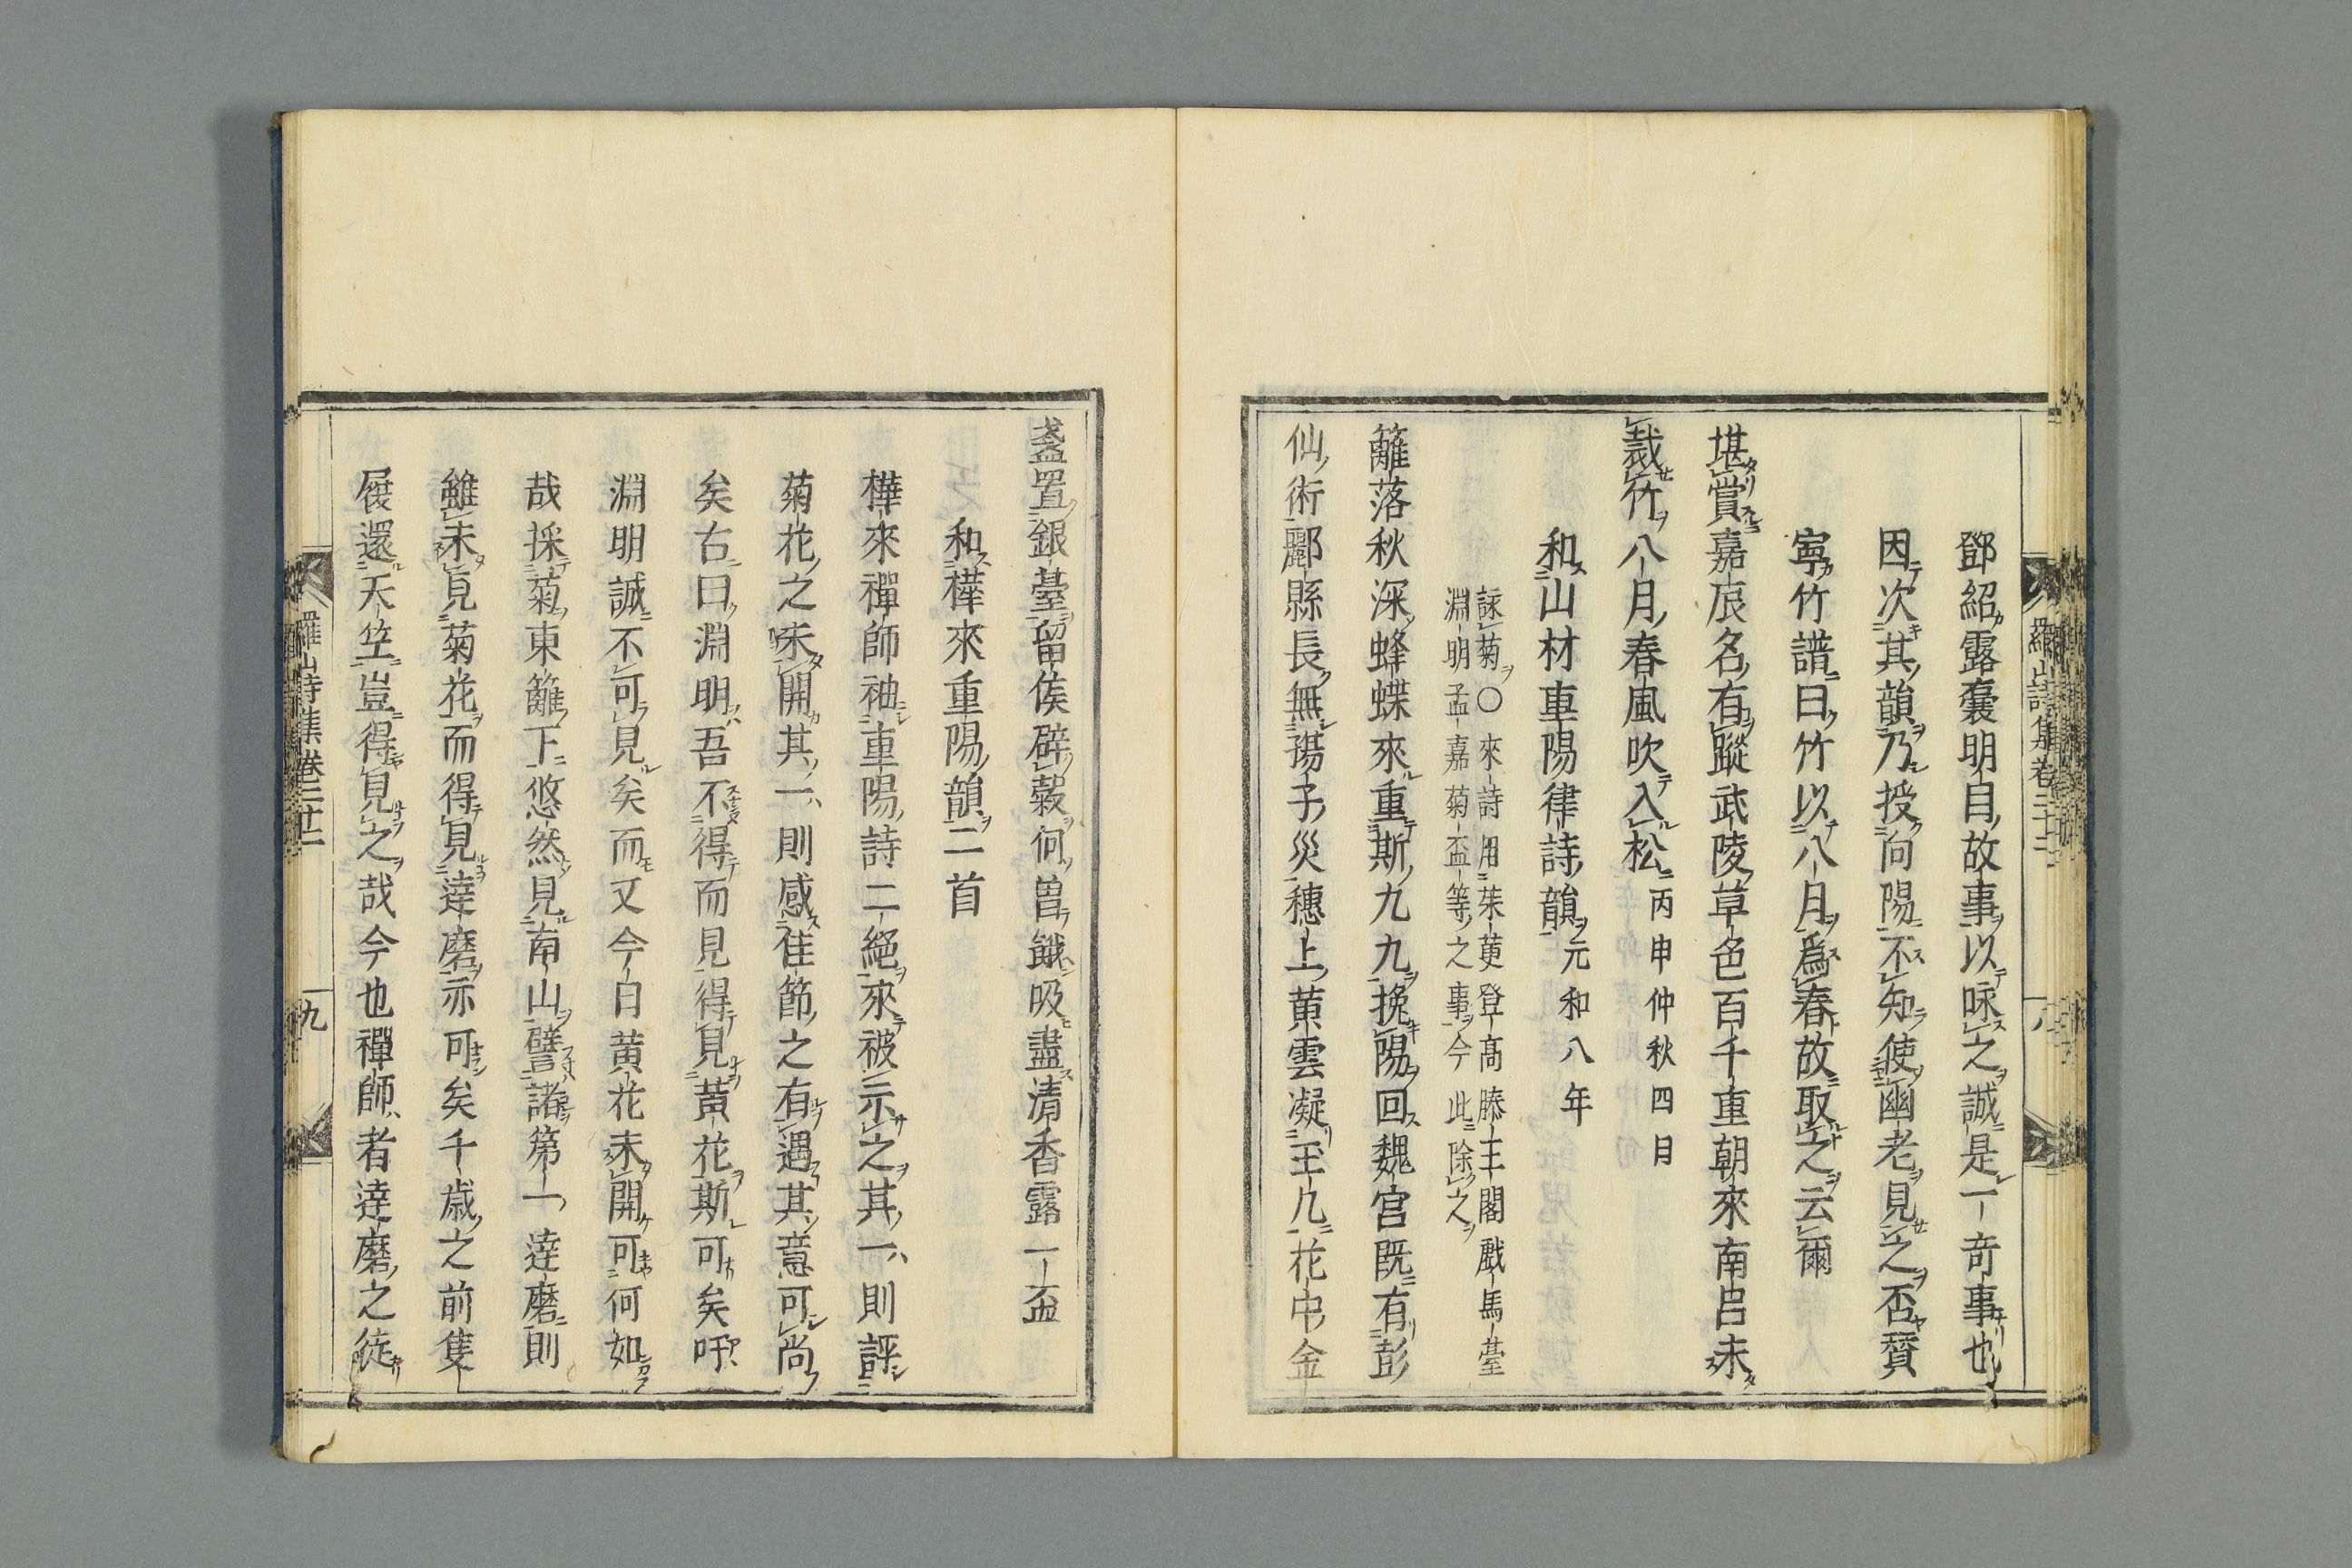 羅山詩集卷三十二
八
鄧紹露囊明目故事以咏之誠是一奇事也
因次其韻乃授向陽不知使函老見之否贇
寧竹譜曰竹以八月爲春故取之云爾
堪賞嘉辰名有蹤武陵草色百千重朝來南呂未
裁竹八月春風吹入松丙申仲秋四日
和山材重陽律詩韻元和八年
詠菊〇來詩用茱萸登高滕王閣戲馬臺
淵明孟嘉菊盃等之事今此除之
籬落秋深蜂蝶來重斯九九挽陽回魏宮既有彭
仙術酈縣長無揚子災穗上黄雲凝玉几花中金
盞置銀臺留侯辟穀何曽餓吸盡清香露一盃
和檋來重陽韻二首
檋來禪師袖重陽詩二絕來被示之其一則評
菊花之味開其一則感佳節之有遇其意可尚
矣右曰淵明吾不得而見得見黃花斯可矣吁
淵明誠不可見矣而又今白黄花未開可何如
哉採菊東籬下悠然見南山譬諸第一達磨則
雖未見菊花而得見達磨亦可矣千歲之前隻
履還天笁豈得見之哉今也禪師者達磨之徒
羅山詩集卷三十二
九